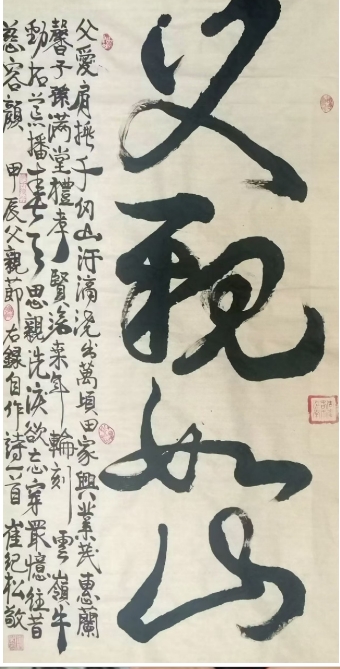 父親如山
父愛肩撐千仞山汗滴澆出萬頃田家興業茂惠蘭
馨子孫滿堂禮孝賢 來年輪刻 雲嶺牛
動 播春 思親洗淚 憶往昔
慈容顏 甲辰父親節 右錄自作詩一首 崔紀松敬